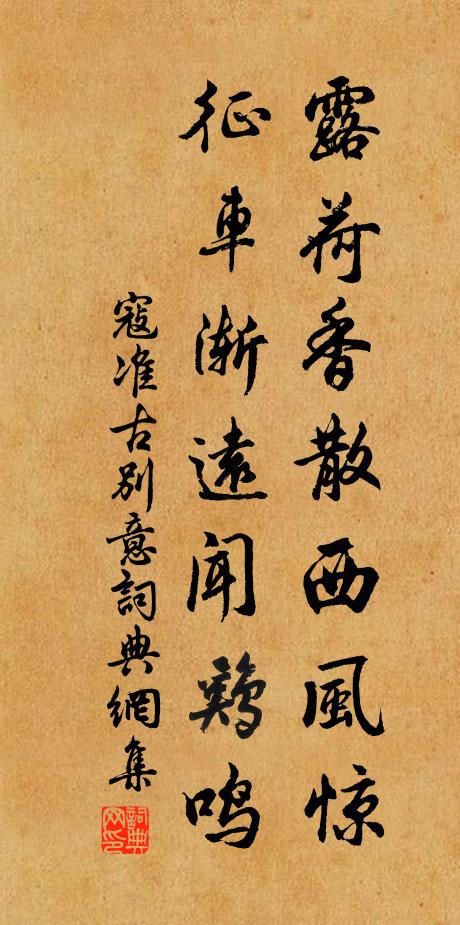 露荷香散西風惊
征車漸遠聞鷄鸣
寇准古别意詞典網集
詞典网印